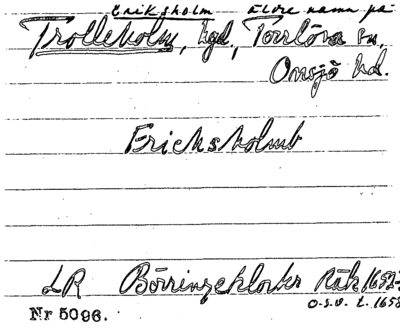 Eriksholm äldre namn på
Trolleholm, hgd., Torrlösa sn,
Onsjö hd.
Ericksholmb
LR Börringeklosters Räk 1652-
o.s.v. t. 1658
Nr 5096.